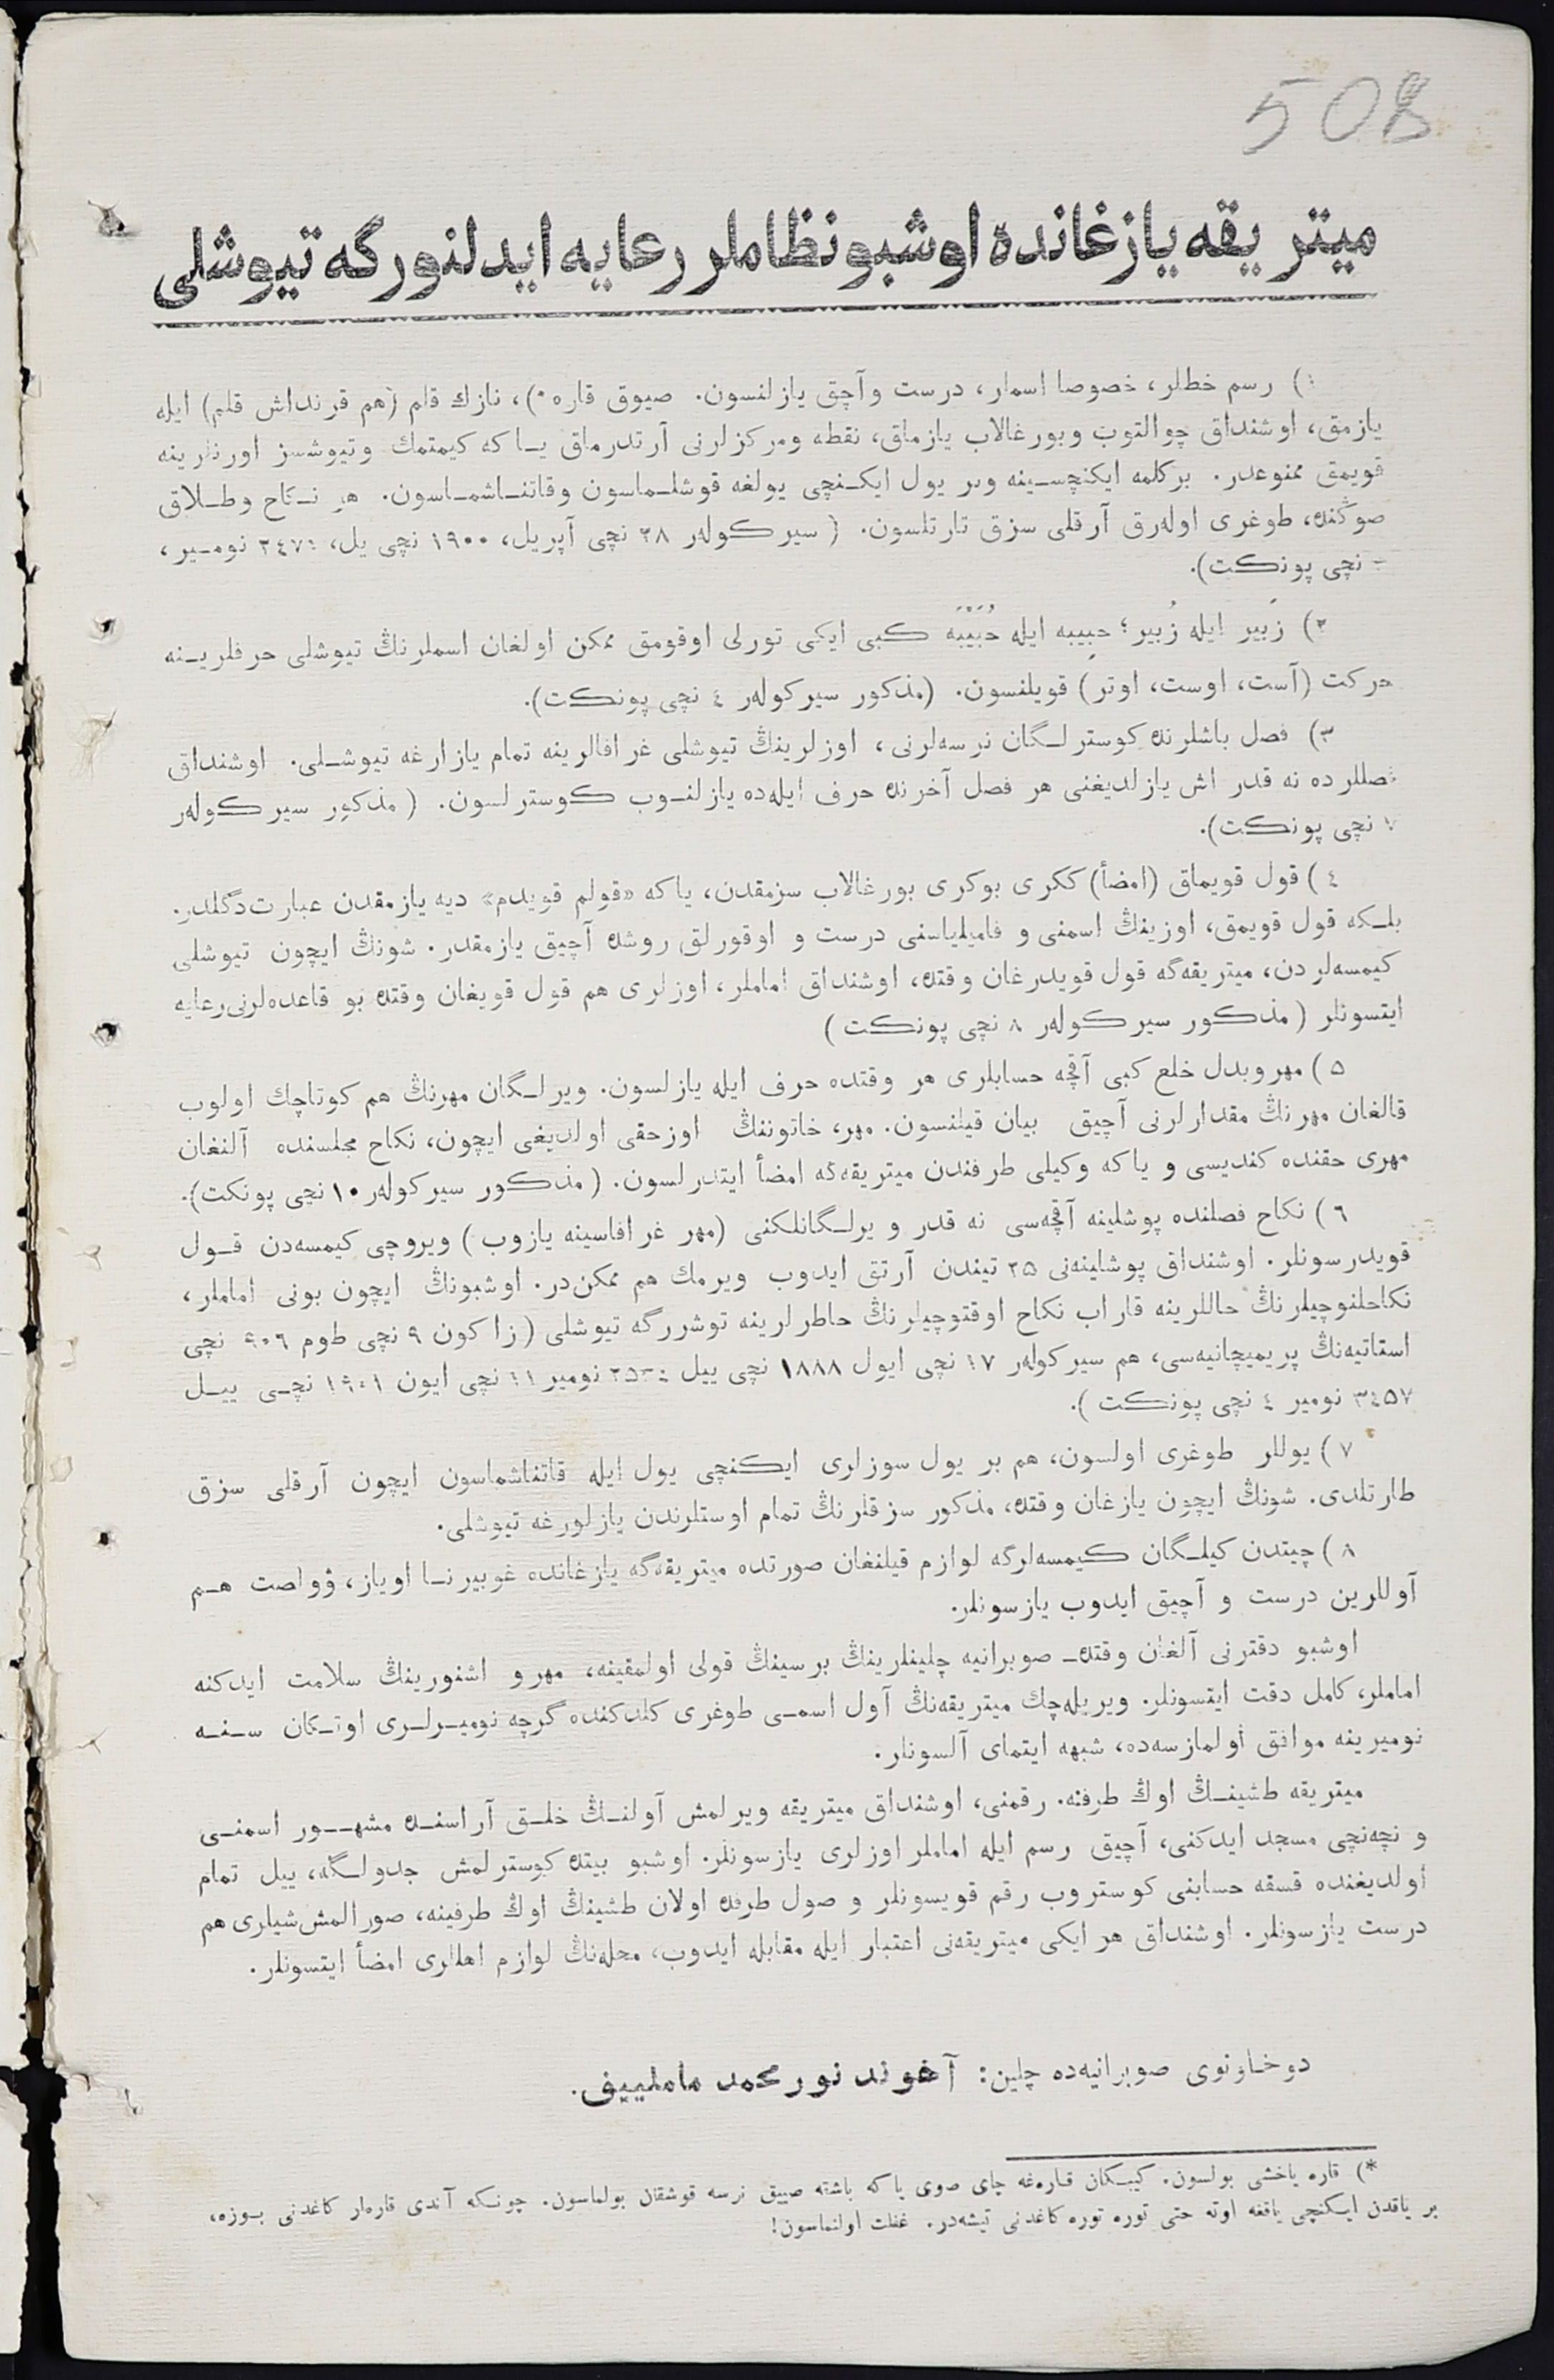 508
میتریقه یازغانده اوشبو نظاملر رعایه ایدلنورگه تیوشلی
۱) رسم خطلر، خصوصا اسملر، درست وآچق یازلنسون. صیوق قاره *)، نازك قلم (هم قرنداش قلم) ایله
یازمق، اوشنداق چوالتوب وبورغالاب یازماق، نقطه ومرکزلرنی آرتدرماق یـاکه کیمتمك وتیوشسز اورنلرینه
قویمق ممنوعدر. برکلمه ایکنچسـینه وبر یول ایکـنچی یولغه قوشلـماسون وقاتنـاشمـاسون. هر نـکاح وطـلاق
صوڭنده، طوغری اولەرق آرقلی سزق تارتلسون. (سیرکولەر ۲۸ نچی آپریل، ۱۹۰۰ نچی یل، نومـیر،
نچی پونکت).
۲) زَبیر ایله زُبیر؛ حبِیبه ایله حُبَیْبَه کبی ایکی تورلی اوقومق ممکن اولغان اسملرنڭ تیوشلی حرفلریـنه
حرکت (آست، اوست، اوتر) قویلنسون. (مذکور سیرکولەر ٤ نچی پونکت).
۳) فصل باشلرنده کوسترلـگان نرسەلرنی، اوزلرینڭ تیوشلی غرافالرینه تمام یازارغه تیوشـلی. اوشنداق
فصللرده نه قدر اش یازلدیغنی هر فصل آخرنده حرف ایلەده یازلنـوب کوسترلسون. (مذکور سیرکولەر
۷ نچی پونکت).
٤) قول قویماق (امضأ) ککری بوکری بورغالاب سزمقدن، یاکه «قولم قویدم» دیه یازمقدن عبارت دگلدر.
بلـکه قول قویمق، اوزینڭ اسمنی و فامیلیاسنی درست و اوقورلق روشده آچیق یازمقدر. شونڭ ایچون تیوشلی
کیمسەلردن، میتریقەگه قول قویدرغان وقتده، اوشنداق اماملر، اوزلری هم قول قویغان وقتده بو قاعدەلرنی رعایه
ایتسونلر (مذکور سیرکولەر ۸ نچی پونکت)
۵) مهر وبدل خلع کبی آقچه حسابلری هر وقتده حرف ایله یازلسون. ویرلـگان مهرنڭ هم کوتاچك اولوب
قالغان مهرنڭ مقدارلرنی آچیق بیان قیلنسون. مهر، خاتوننڭ اوزحقی اولدیغی ایچون، نکاح مجلسنده آلنغان
مهری حقنده کندیسی و یاکه وکیلی طرفندن میتریقەگه امضأ ایتدرلسون. (مذکور سیرکولەر ۱۰ نچی پونکت).
٦) نکاح فصلنده پوشلینه آقچەسی نه قدر ویرلـگانلکنی (مهر غرافاسینه یازوب) ویروچی کیمسەدن قـول
قویدرسونلر. اوشنداق پوشلینەنی ۲۵ تیندن آرتق ایدوب ویرمك هم ممکن‌در. اوشبونڭ ایچون بونی اماملر،
نکاحلنوچیلرنڭ حاللرینه قاراب نکاح اوقتوچیلرنڭ خاطرلرینه توشررگه تیوشلی (زاکون ۹ نچی طوم ۹۰٦ نچی
استاتیەنڭ پریمیچانیەسی، هم سیرکولەر ۱۷ نچی ایول ۱۸۸۸ نچی ییل نومیر ۱۱ نچی ایون ۱۹۰۱ نچـی ییـل
۳٤۵۷ نومیر ٤ نچی پونکت).
۷) یوللر طوغری اولسون، هم بر یول سوزلری ایکنچی یول ایله قاتناشماسون ایچون آرقلی سزق
طارتلدی. شونڭ ایچون یازغان وقتده، مذکور سزقلرنڭ تمام اوستلرندن یازلورغه تیوشلی.
۸) چیتدن کیلـگان کیمسەلرگه لوازم قیلنغان صورتده میتریقەگه یازغانده غوبیرنـا اویاز، ۇولصت هـم
آوللرین درست و آچیق ایدوب یازسونلر.
اوشبو دفترنی آلغان وقتدە صوبرانیه چلینلرینڭ برسینڭ قولی اولمقینه، مهر و اشنورینڭ سلامت ایدکنه
اماملر، کامل دقت ایتسونلر. ویریلەچك میتریقەنڭ آول اسمـی طوغری کلدکنده گرچه نومیـرلـری اوتـکان سـنـه
نومیرینه موافق اولمازسەده، شبهه ایتمای آلسونلر.
میتریقه طشینـڭ اوڭ طرفنه، رقمنی، اوشنداق میتریقه ویرلمش آولنـڭ خلـق آراسنـده مشهـور اسمنـی
و نچەنچی مسجد ایدکنی، آچیق رسم ایله اماملر اوزلری یازسونلر. اوشبو بیتده کوسترلمش جدولـگه، ییل تمام
اولدیغنده قسقه حسابنی کوستروب رقم قویسونلر و صول طرفده اولان طشینڭ اوڭ طرفینه، صورالمش شیلری هم
درست یازسونلر. اوشنداق هر ایکی میتریقەنی اعتبار ایله مقابله ایدوب، محلەنڭ لوازم اهللری امضأ ایتسونلر.
دوخاونوی صوبرانیەده چلین: آخوند نورمحمد ماملییف.
*) قاره یاخشی بولسون. کیبـکان قارەغه چای صوی یاکه باشقه صییق نرسه قوشقان بولماسون. چونـکه آندی قارەلر کاغدنی بـوزه،
بر یاقدن ایـکنچی یاققه اوته حتی توره توره کاغدنی تیشەدر. غفلت اولنماسون!